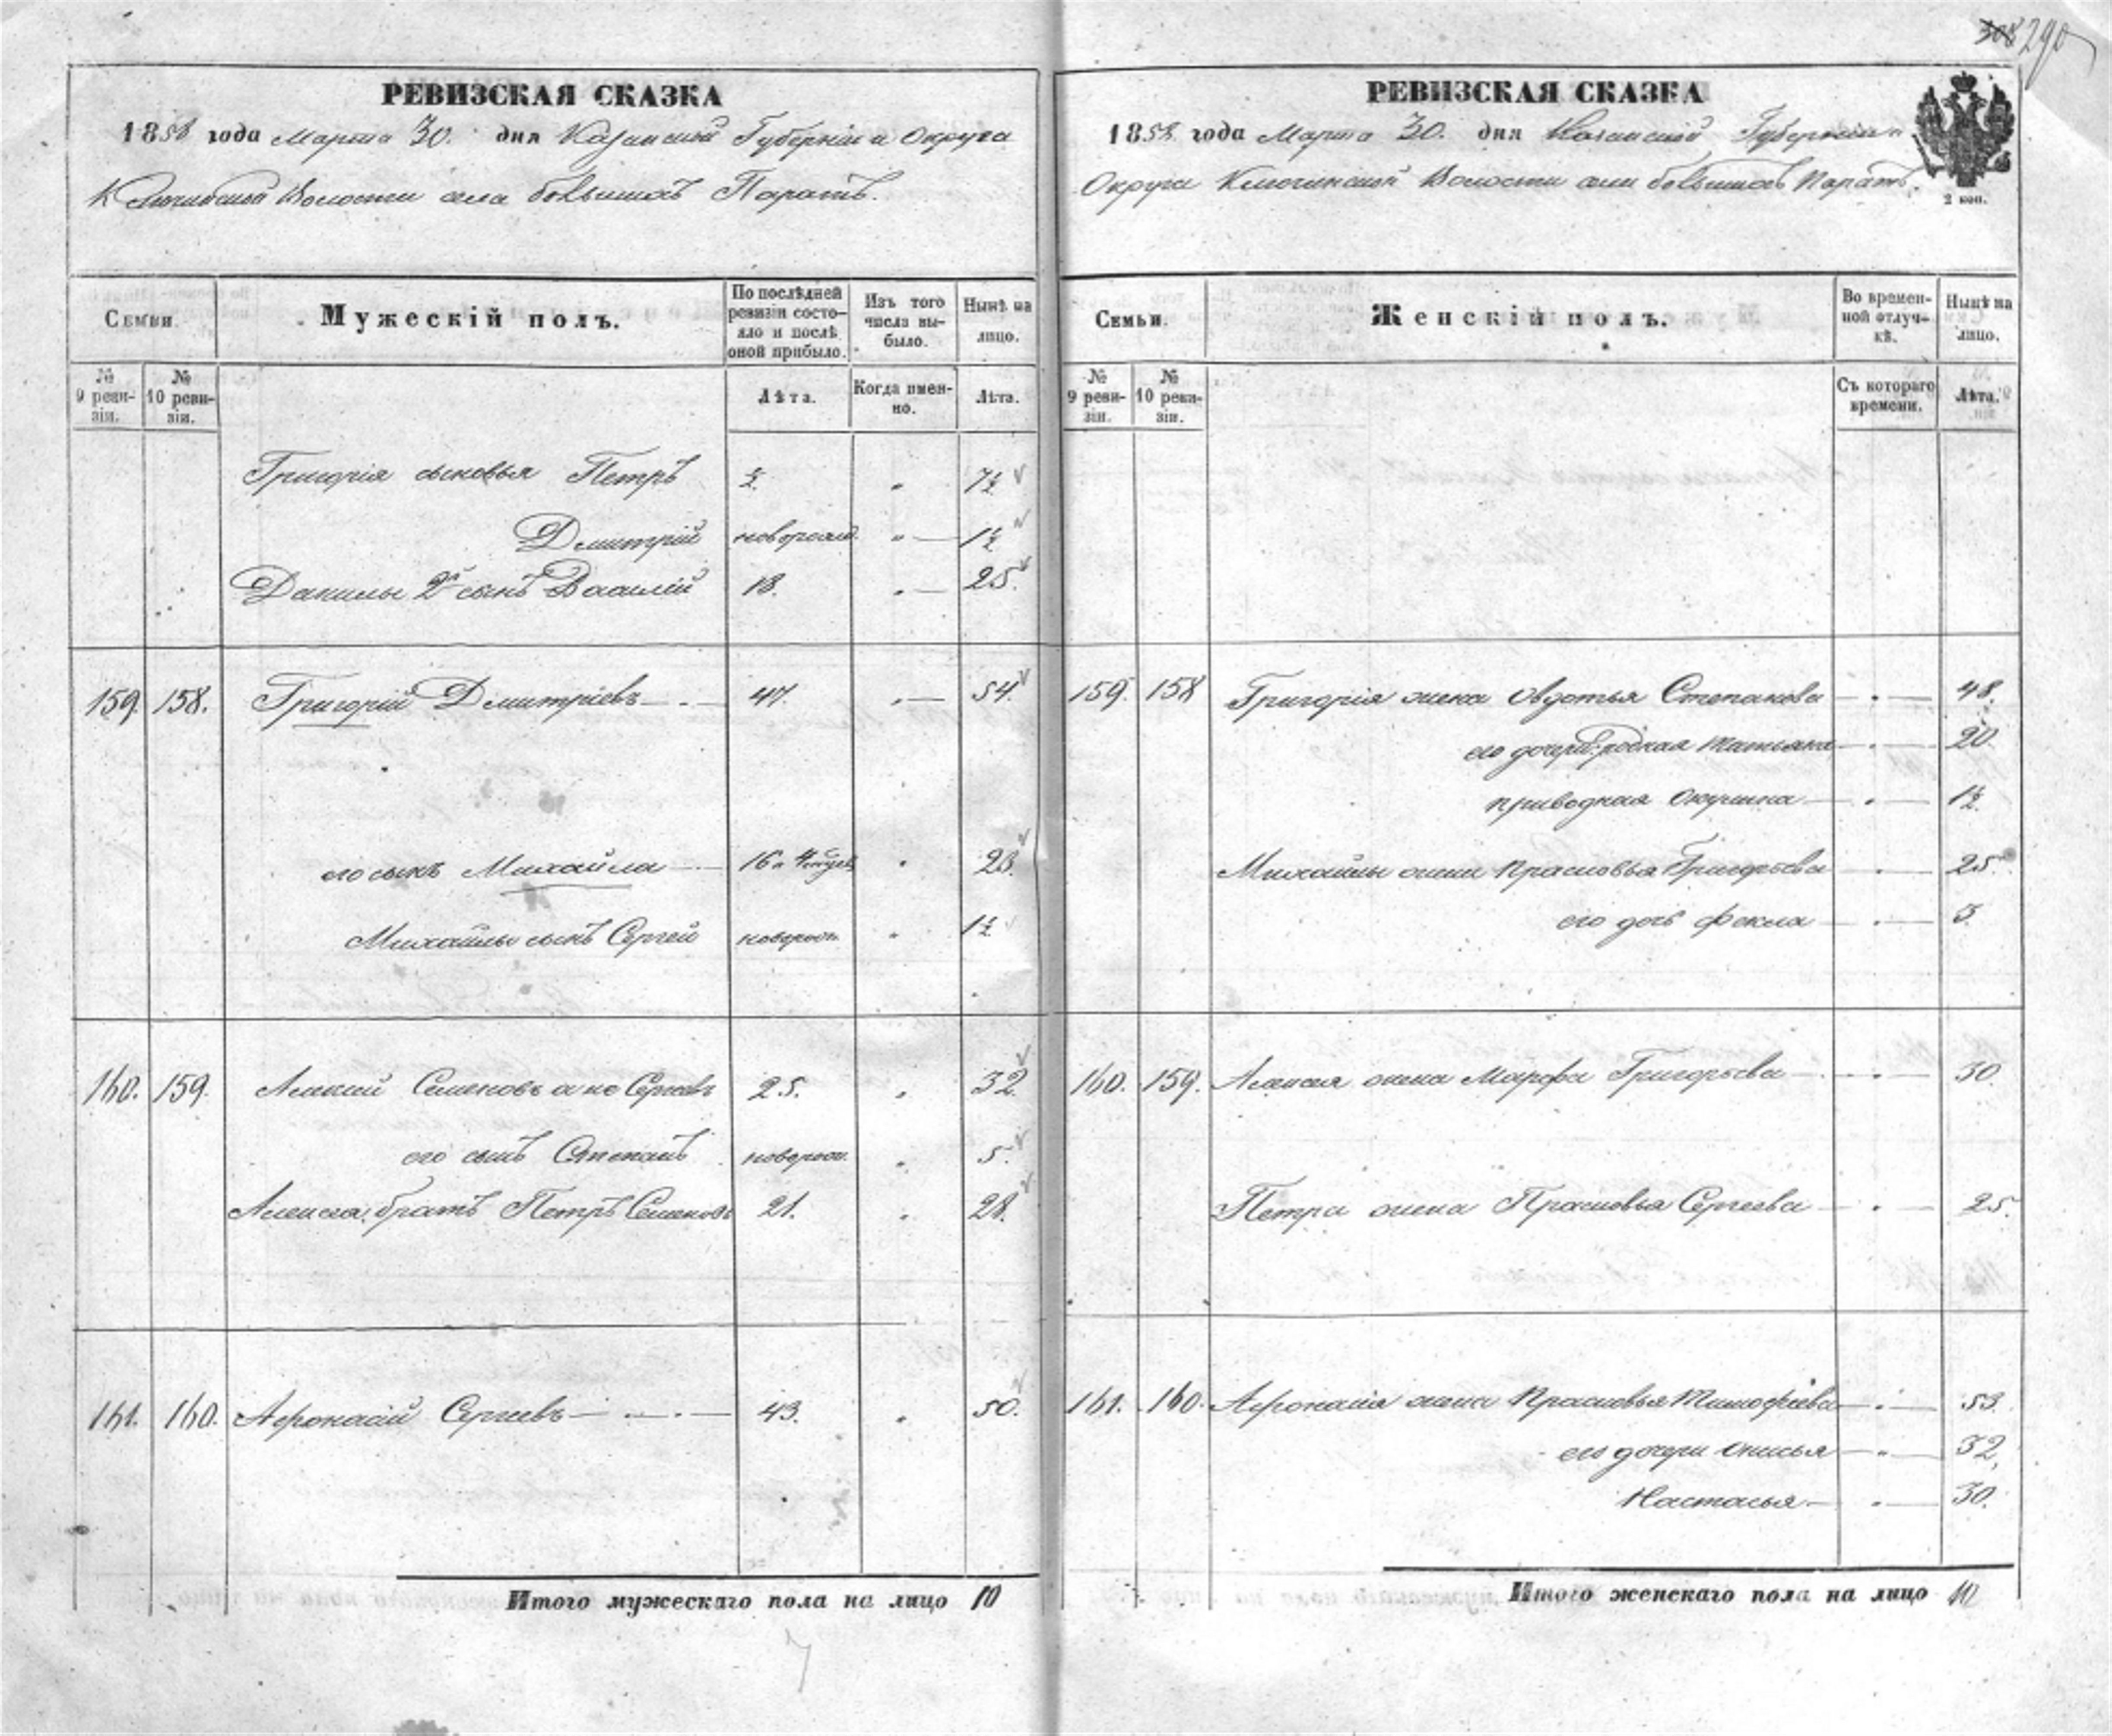 290
РЕВИЗСКАЯ СКАЗКА
1858 года Марта 30. дня Казанской Губерніи и Округа
Ключинской Волости села большихъ Паратъ.
Семьи.
Мужескій полъ.
По послѣдней ревизіи состояло и послѣ оной прибыло.
Изъ того числа выбыло.
Нынѣ на лицо.
№ 9 ревизіи.
№ 10 ревизіи.
Лѣта.
Когда именно.
Лѣта.
Григорія сыновья Петръ ½ " 7½
Дмитрій новорожд. " 1½
Данилы 2й сынъ Василій 18. " 25.
159. 158. Григорій Дмитріевъ 47. " 54.
его сынъ Михайла 16 " 23.
Михайлы сынъ Сергей новорож. " 1½
160. 159. Алексей Семеновъ а не Сергеевъ 25. " 32.
его сынъ Степанъ новорож. " 5.
Алексея братъ Петръ Семеновъ 21. " 28.
161. 160. Афонасій Сергеевъ 43. " 50.
Итого мужескаго пола на лицо 10
РЕВИЗСКАЯ СКАЗКА
1858 года Марта 30. дня Казанской Губерніи и
Округа Ключинской Волости села большихъ Паратъ.
2 коп.
Семьи.
Женскій полъ.
Во временной отлучкѣ.
Нынѣ на лицо.
№ 9 ревизіи.
№ 10 ревизіи.
Съ котораго времени.
Лѣта.
159. 158 Григорія жена Овдотья Степанова " 48.
его дочери: родная Татьяна " 20.
приводная Окулина " 1½
Михайлы жена Прасковья Григорьева " 25.
его дочь Фекла " 3.
160. 159. Алексея жена Марфа Григорьева " 30.
Петра жена Прасковья Сергеева " 25.
161. 160. Афонасія жена Прасковья Тимофеева " 53.
его дочери Онисья " 32.
Настасья " 30.
Итого женскаго пола на лицо 10